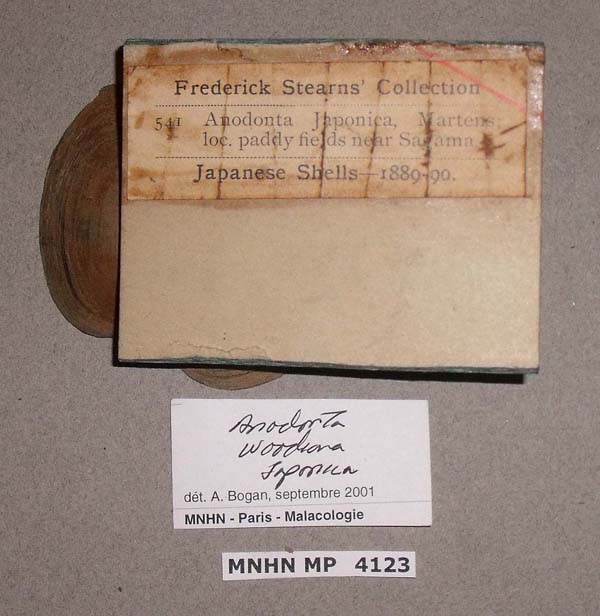 Frederick Stearns' Collection
541 Anodonta Japonica, Martens;
loc. paddy fields near Sagama.
Japanese Shells—1889-90.
Anodonta
Japonica
dét. A. Bogan, septembre 2001
MNHN - Paris - Malacologie
MNHN MP 4123